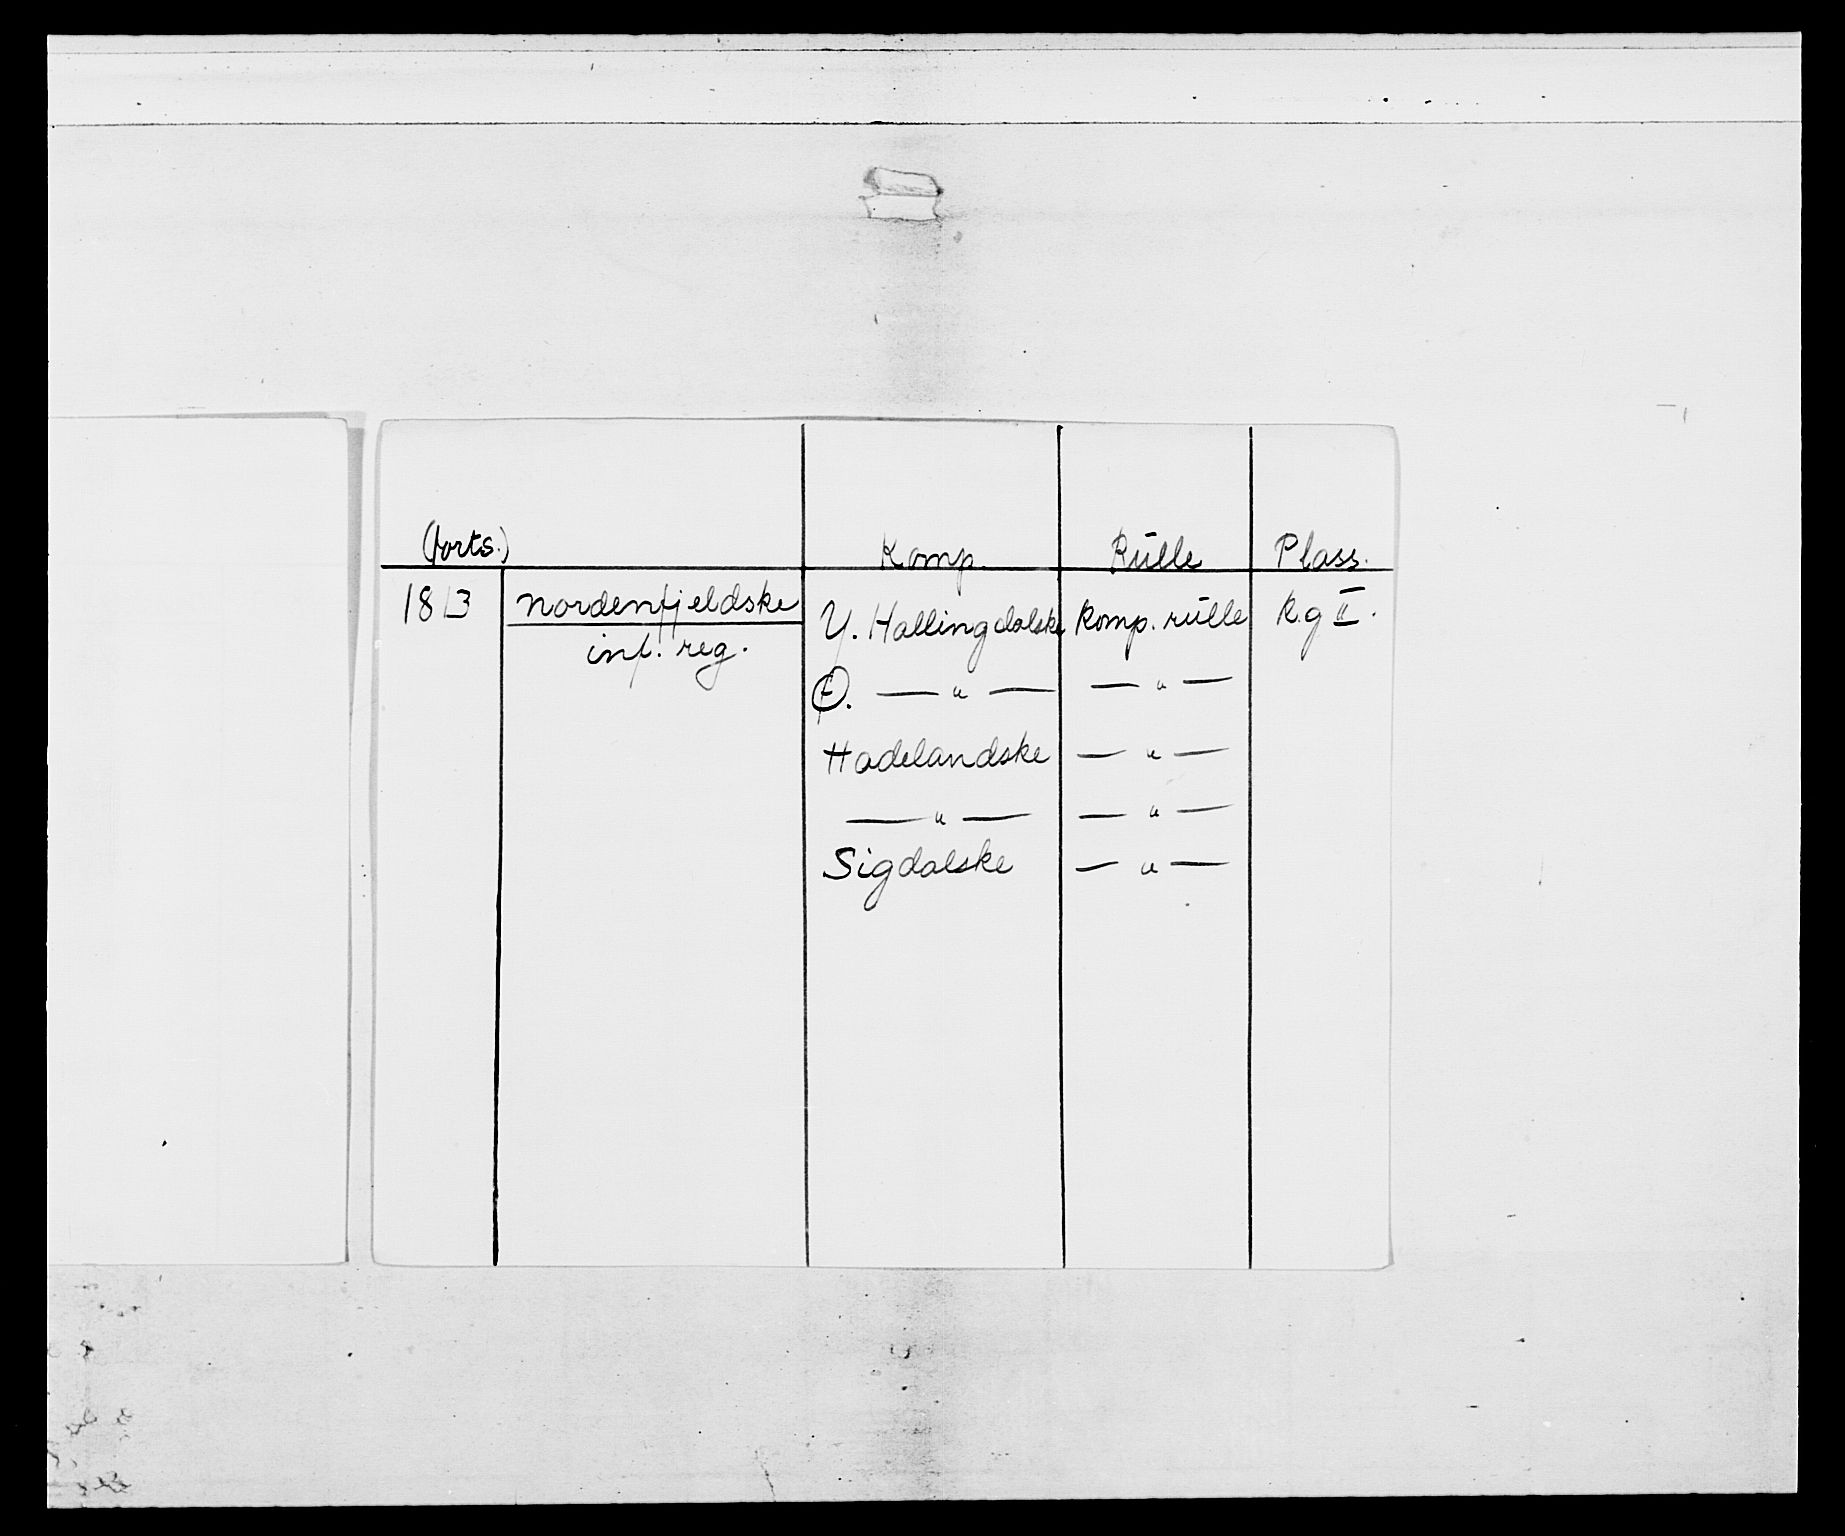 (forts.) Komp. Rulle Plass.
1813 Nordenfjeldske Y. Hallingdalske Komp. rulle R.g II.
inf. reg.
Ø. — " — — " —
Hadelandske — " —
— " — — " —
Sigdalske — " —